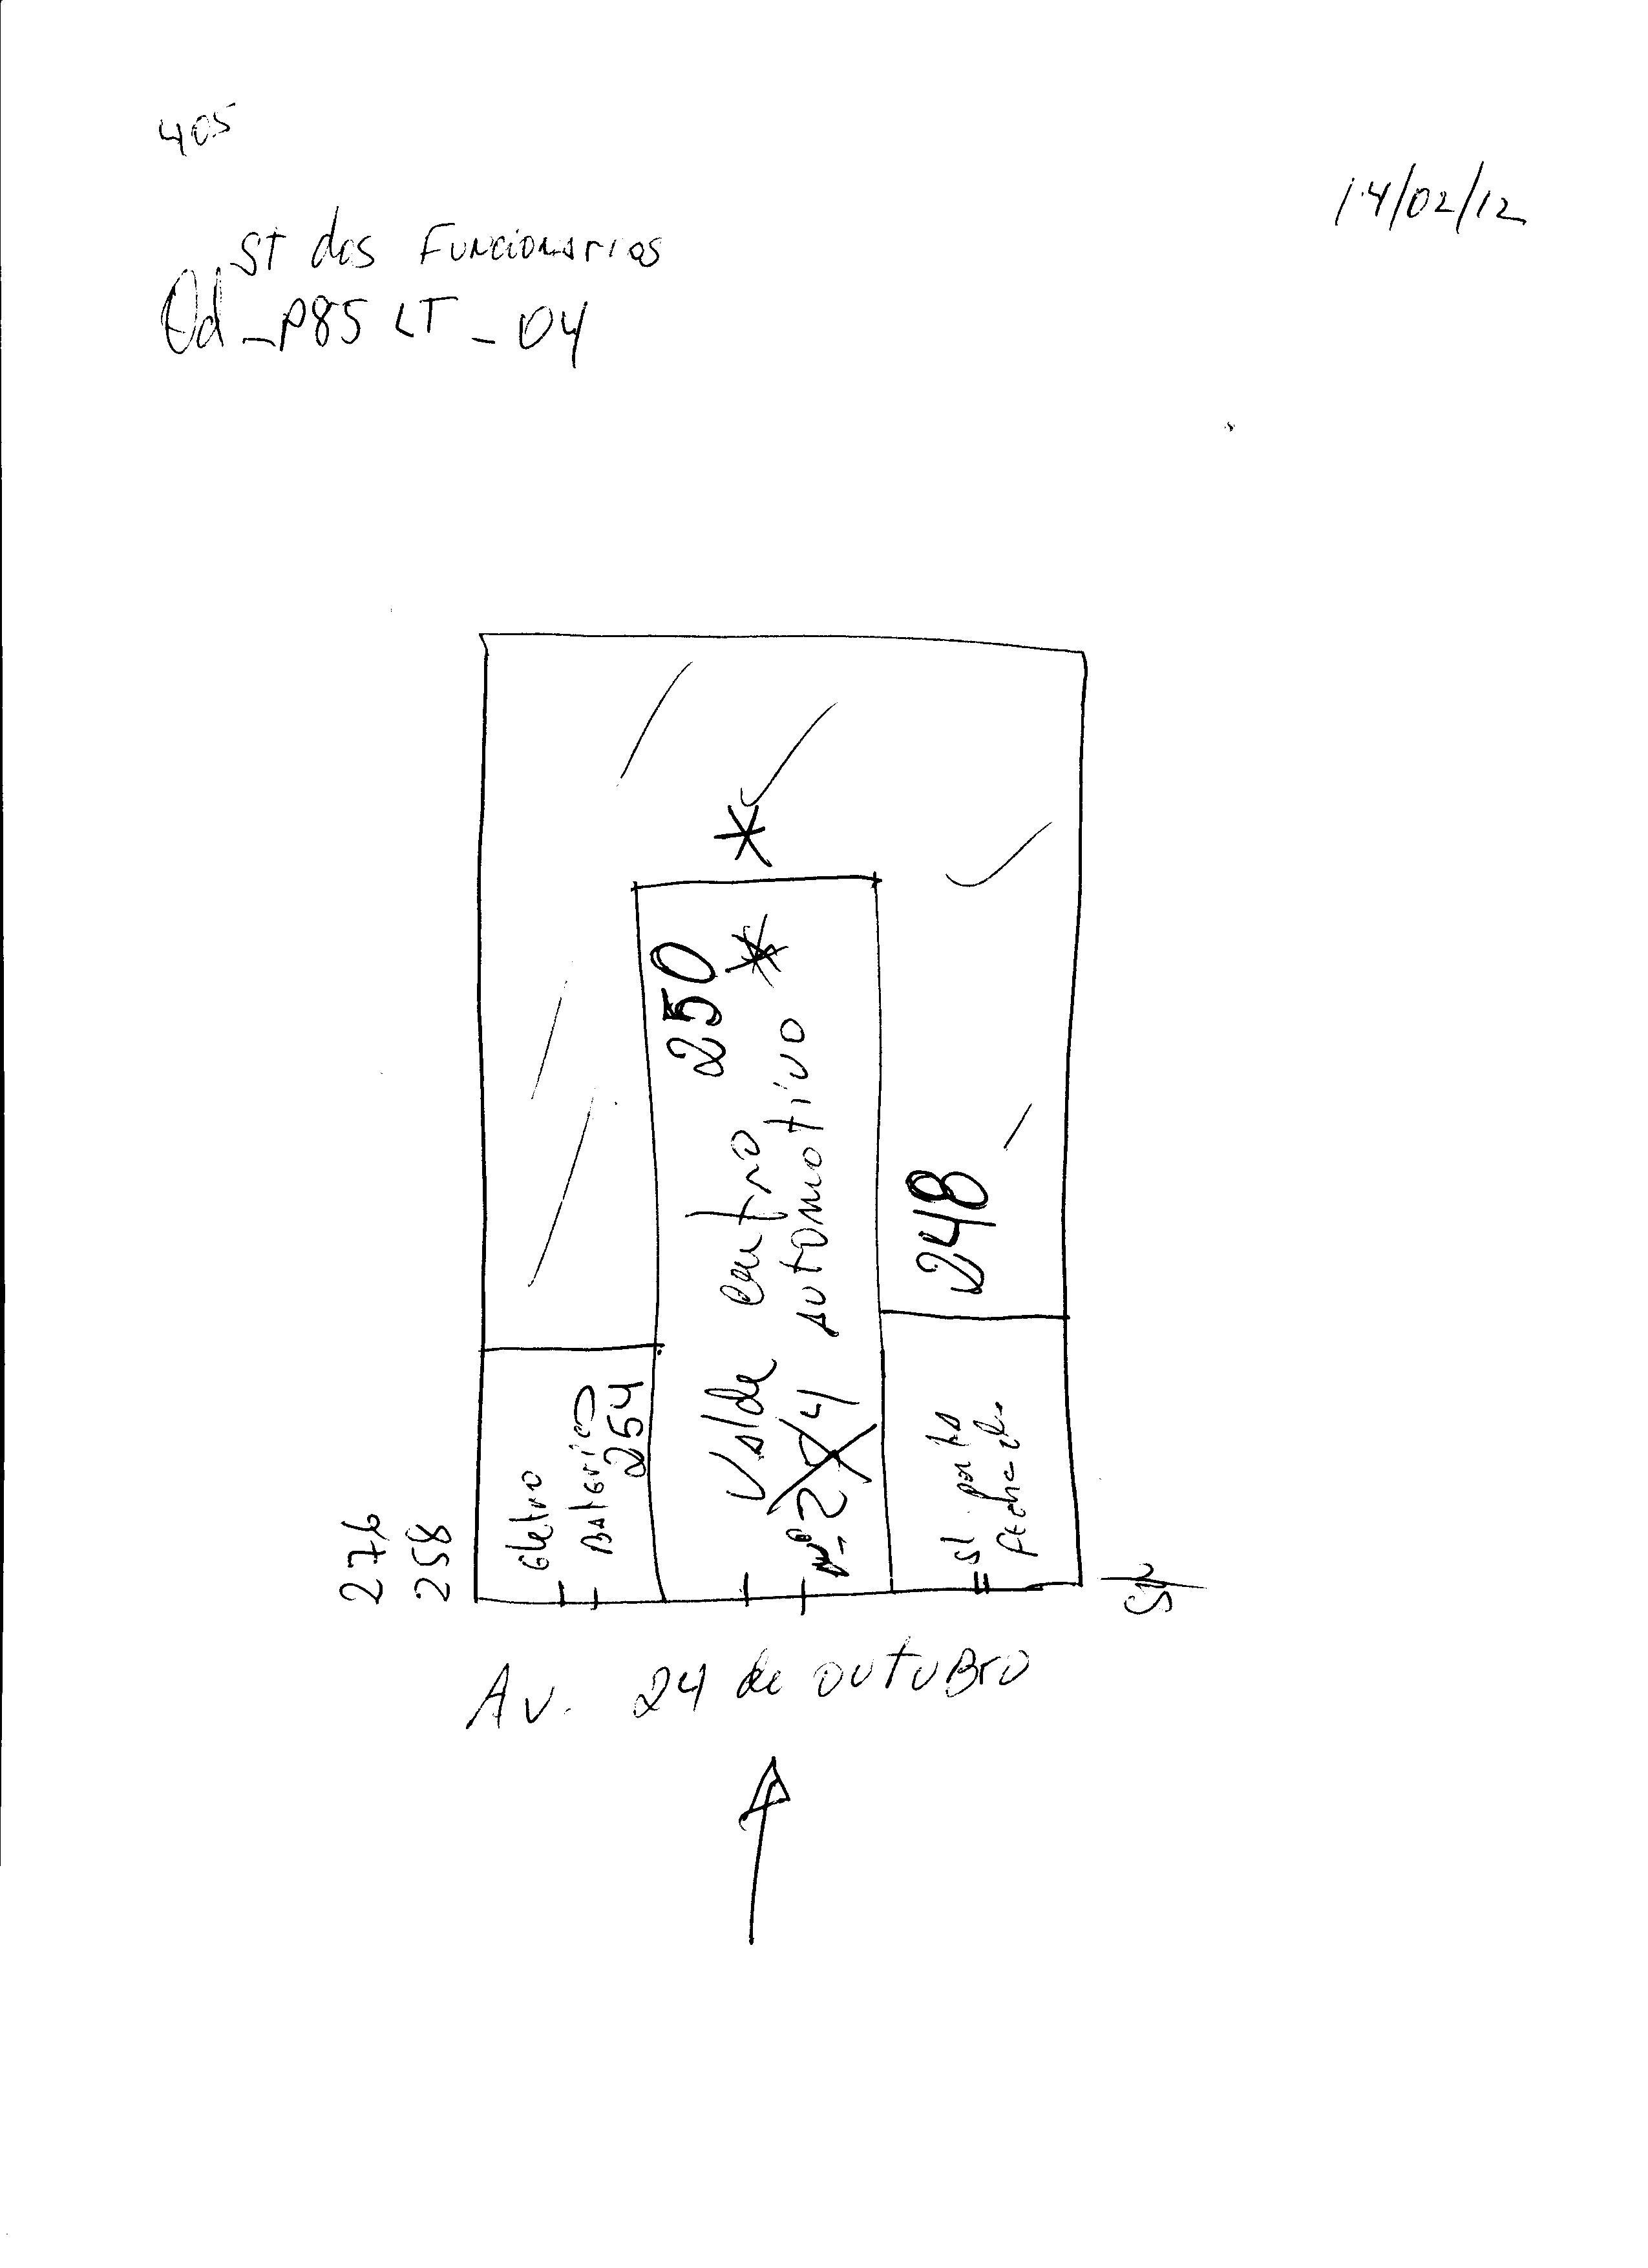 405
14/02/12
St dos Funcionarios
Qd - P85 LT - 04
250
Valde centro
automotivo
248
Eletro
Bateria
254
nº 2
sl porta
fechada
276
258
Av. 24 de outubro